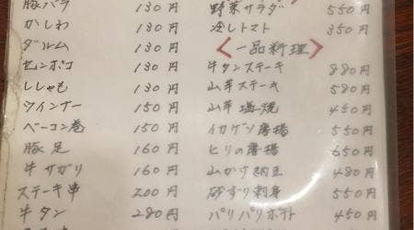 豚バラ 130円
かしわ 130円
ダルム 130円
センポコ 130円
ししゃも 130円
ウインナー 150円
ベーコン巻 150円
豚足 160円
牛サガリ 160円
ステーキ串 200円
牛タン 280円
野菜サラダ 550円
冷しトマト 350円
<一品料理>
牛タンステーキ 880円
山芋ステーキ 580円
山芋塩焼 450円
イカゲソ唐揚 550円
ヒリの唐揚 650円
山かけ納豆 480円
砂ずり刺身 550円
パリパリポテト 450円